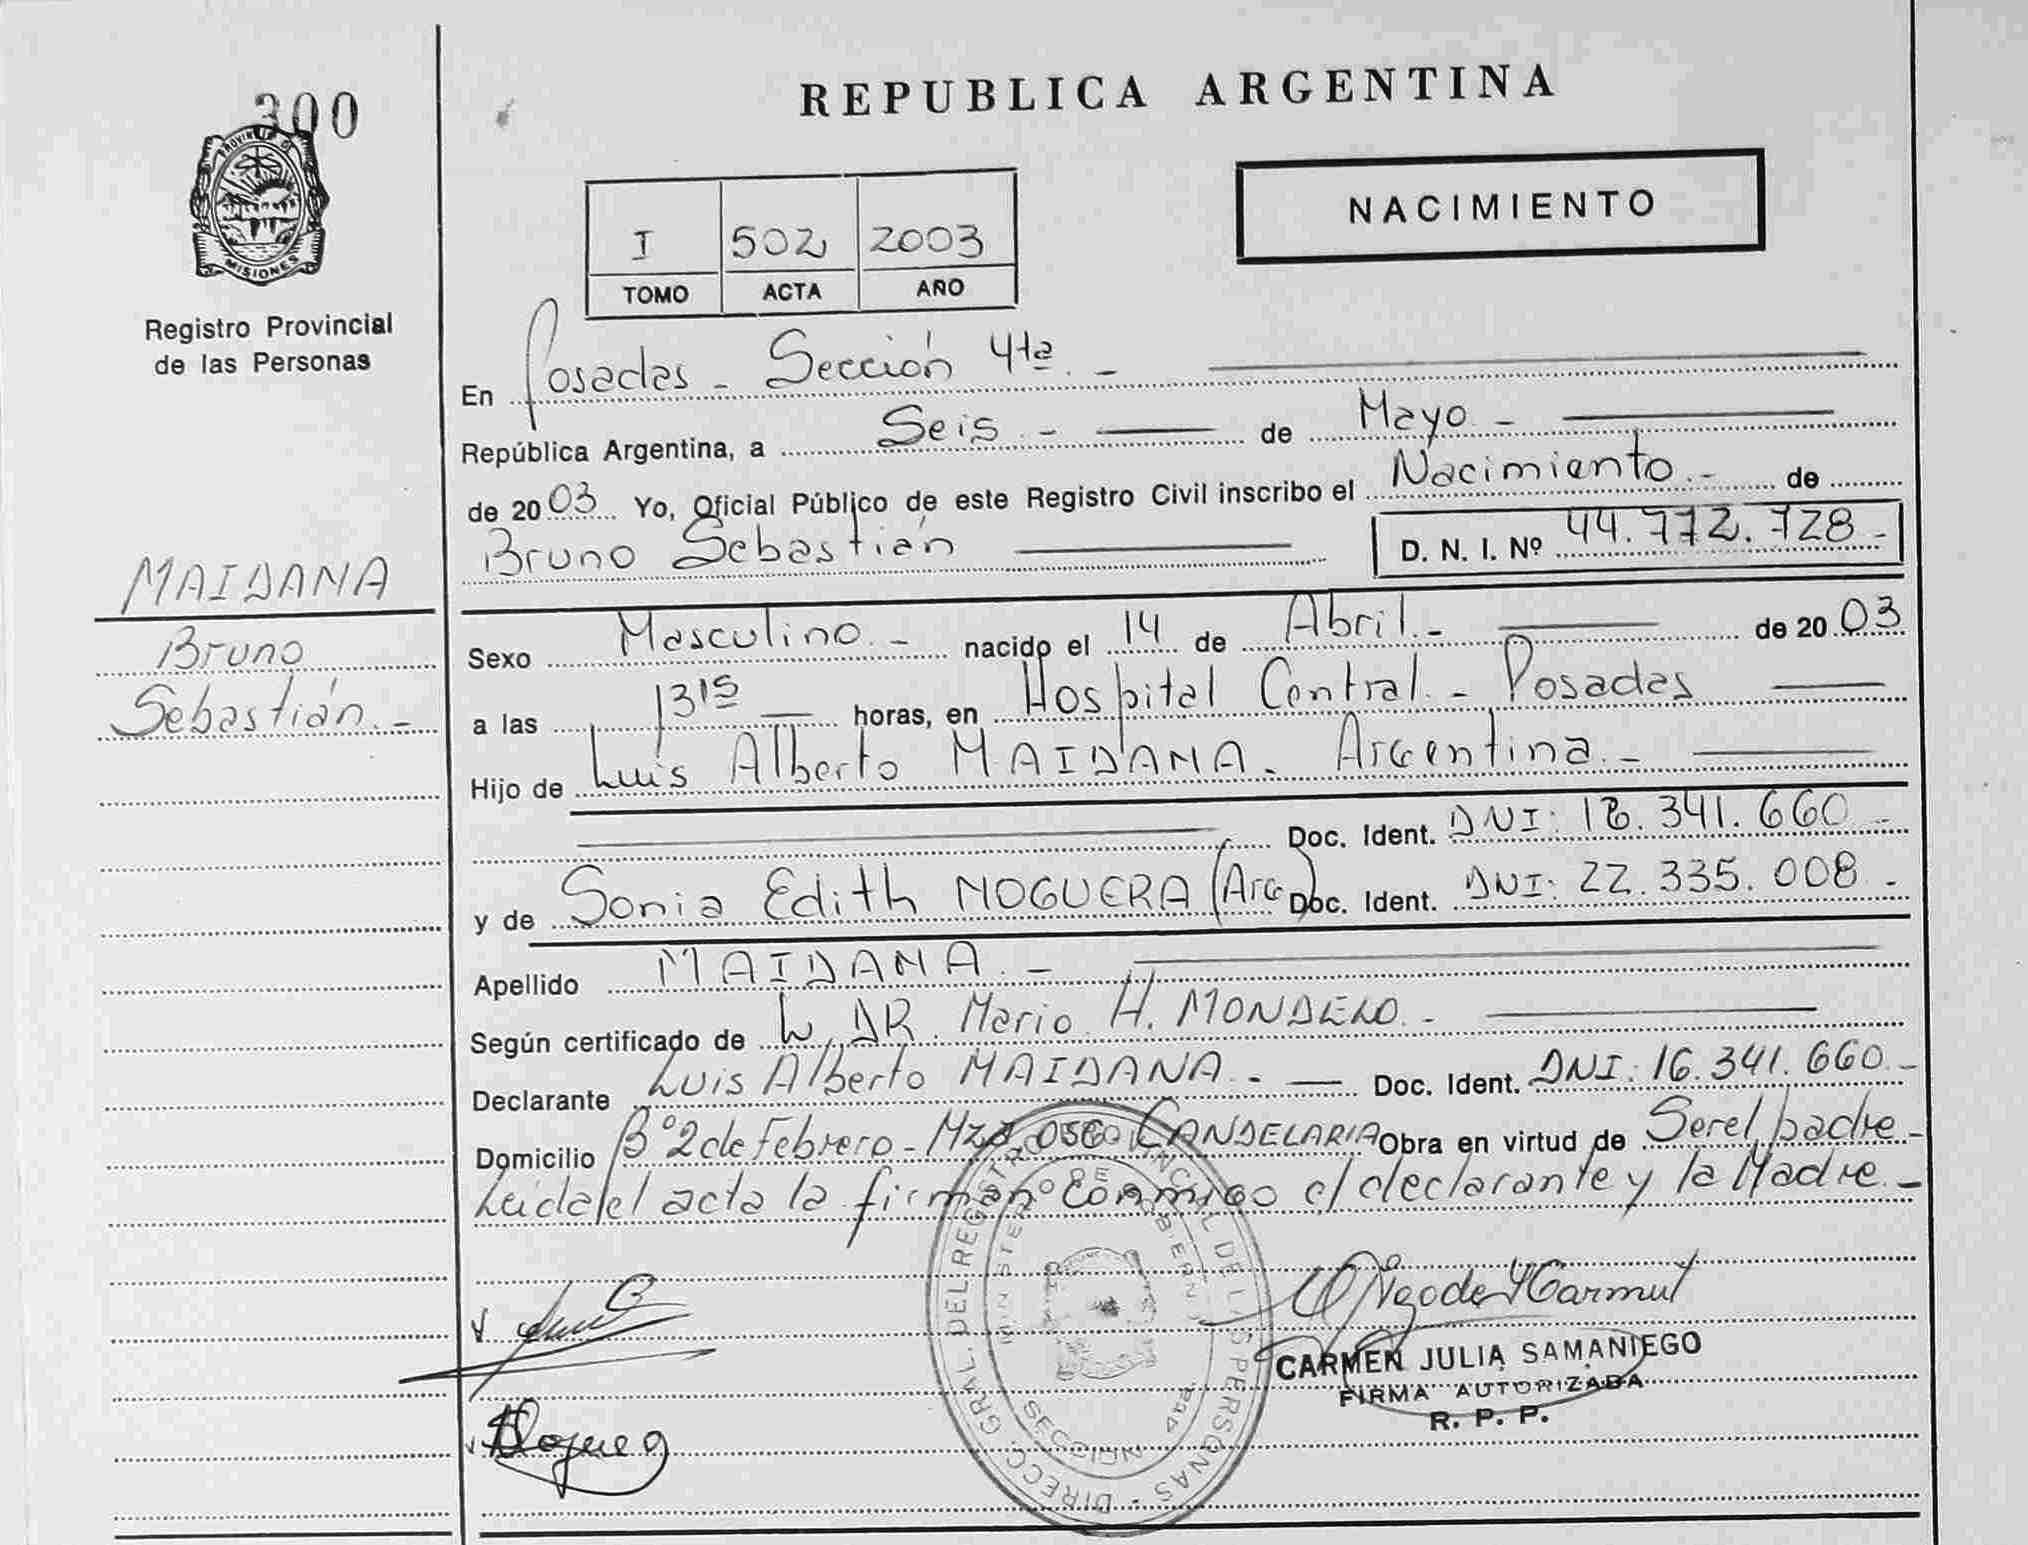 300
PROVINCIA DE
MISIONES
Registro Provincial
de las Personas
MAIDANA
Bruno
Sebastián.-
REPUBLICA ARGENTINA
NACIMIENTO
I 502 2003
TOMO ACTA AÑO
En Posadas - Sección 4ta. -
República Argentina, a Seis.- de Mayo.-
de 2003 Yo, Oficial Público de este Registro Civil inscribo el Nacimiento.- de
Bruno Sebastián D. N. I. Nº 44.772.728.-
Sexo Masculino.- nacido el 14 de Abril.- de 2003
a las 13 15 horas, en Hospital Central.- Posadas
Hijo de Luis Alberto MAIDANA. Argentina.-
Doc. Ident. DNI: 16.341.660.-
y de Sonia Edith NOGUERA (Arg) Doc. Ident. DNI: 22.335.008.-
Apellido MAIDANA.-
Según certificado de DR. Mario H. MONDELO.-
Declarante Luis Alberto MAIDANA.- Doc. Ident. DNI: 16.341.660.-
Domicilio Bº 2 de Febrero - Mza CANDELARIA Obra en virtud de Ser el padre-
Leida el acta la firman conmigo el declarante y la Madre.-
CARMEN JULIA SAMANIEGO
FIRMA AUTORIZADA
R. P. P.
DIRECC. GRAL. DEL REGISTRO PROVINCIAL DE LAS PERSONAS -
MINISTERIO DE GOBIERNO
SECCION 4ta